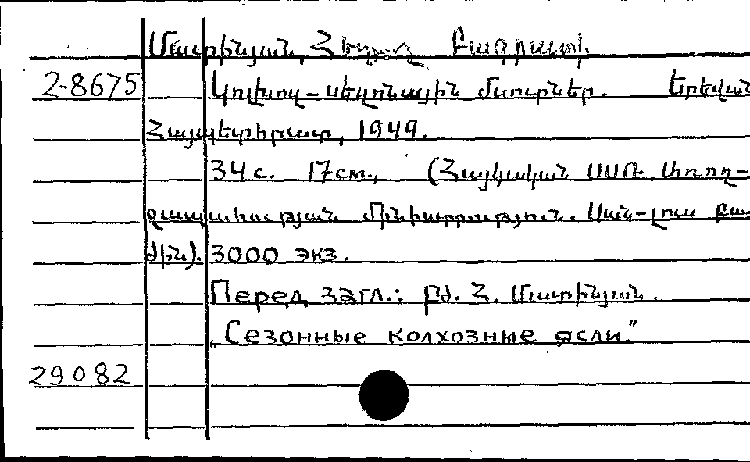 Մատինյան, Հ Բագրատի
2-8675 Կոլխոզ-սեզոնային մսուրներ. Երեվան
Հայպետհրատ, 1949.
34 с. 17 см., (Հայկական ՍՍՌ Առող-
ջապահության մինիստրություն. Սան-լուս բա-
ժին). 3000 экз.
Перед загл.: Բժ. Հ. Մատինյան.
„Сезонные колхозные ясли."
29082